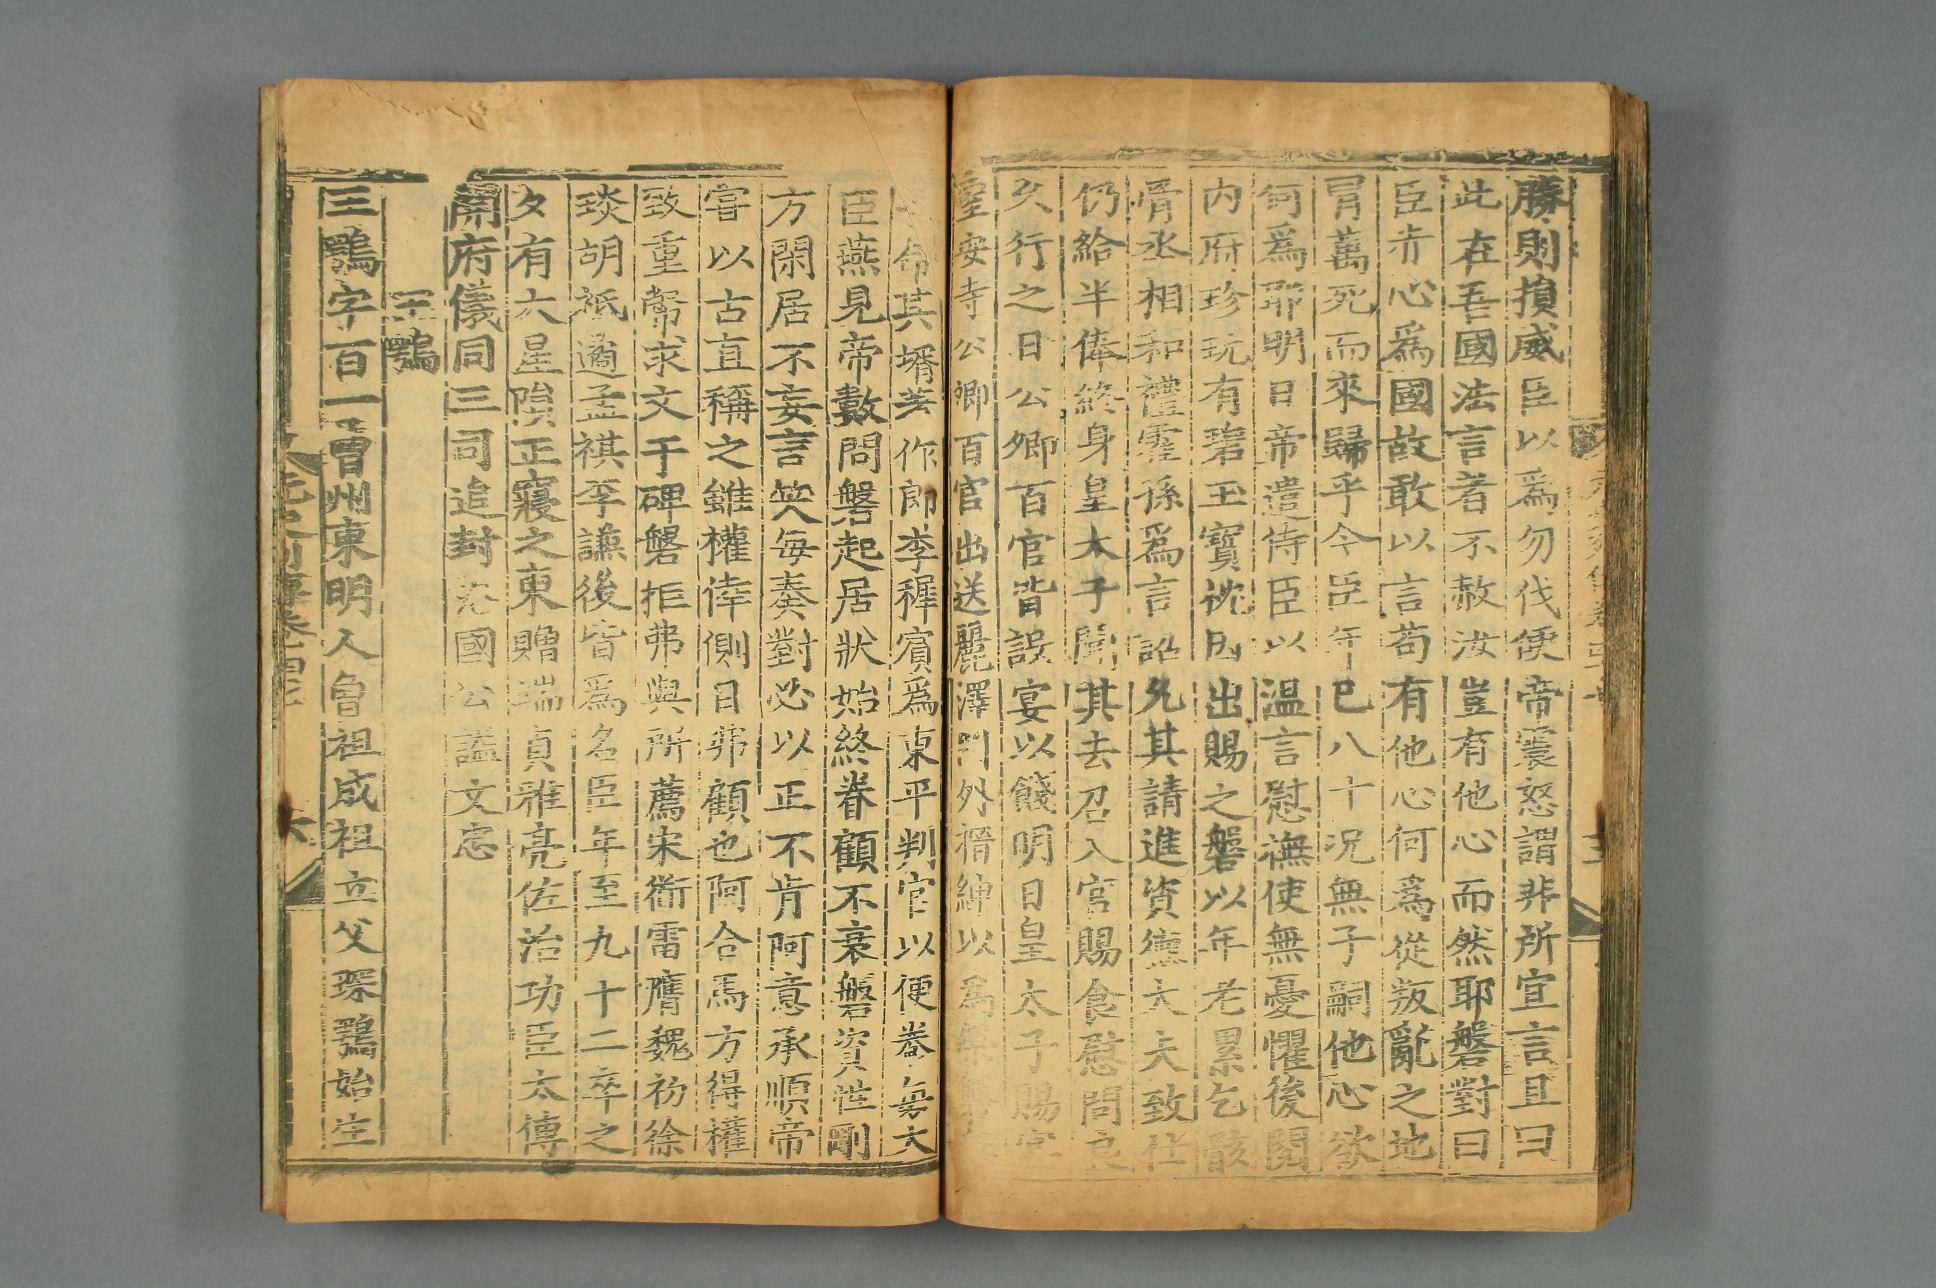 勝則損威臣以爲勿伐便帝震怒謂非所宜言且曰
此在吾國法言者不赦汝豈有他心而然耶磐對曰
臣赤心爲國故敢以言苟有他心何爲從叛亂之地
冒萬死而來歸乎今臣年已八十況無子嗣他心欲
何爲耶明日帝遣侍臣以温言慰撫使無憂懼後閱
内府珍玩有碧玉寶枕因出賜之磐以年老累乞骸
骨丞相和禮霍孫爲言詔允其請進資德大夫致仕
仍給半俸終身皇太子聞其去召入宮賜食慰問良
久行之日公卿百官皆設宴以餞明日皇太子賜宴
聖安寺公卿百官出送麗澤門外搢紳以爲榮磐
命其壻著作郎李穉賓爲東平判官以便養每大
臣燕見帝數問磐起居狀始終眷顧不衰磐資性剛
方閑居不妄言笑每奏對必以正不肯阿意承順帝
嘗以古直稱之雖權倖側目弗顧也阿合馬方得權
致重幣求文于碑磐拒弗與所薦宋衜雷膺魏初徐
琰胡祗遹孟祺李謙後皆爲名臣年至九十二卒之
夕有大星隕正寢之東贈端貞雅亮佐治功臣太傅
開府儀同三司追封洺國公諡文忠
王鶚
王鶚字百一曹州東明人曾祖成祖立父琛鶚始生
元史列傳卷四十七
六